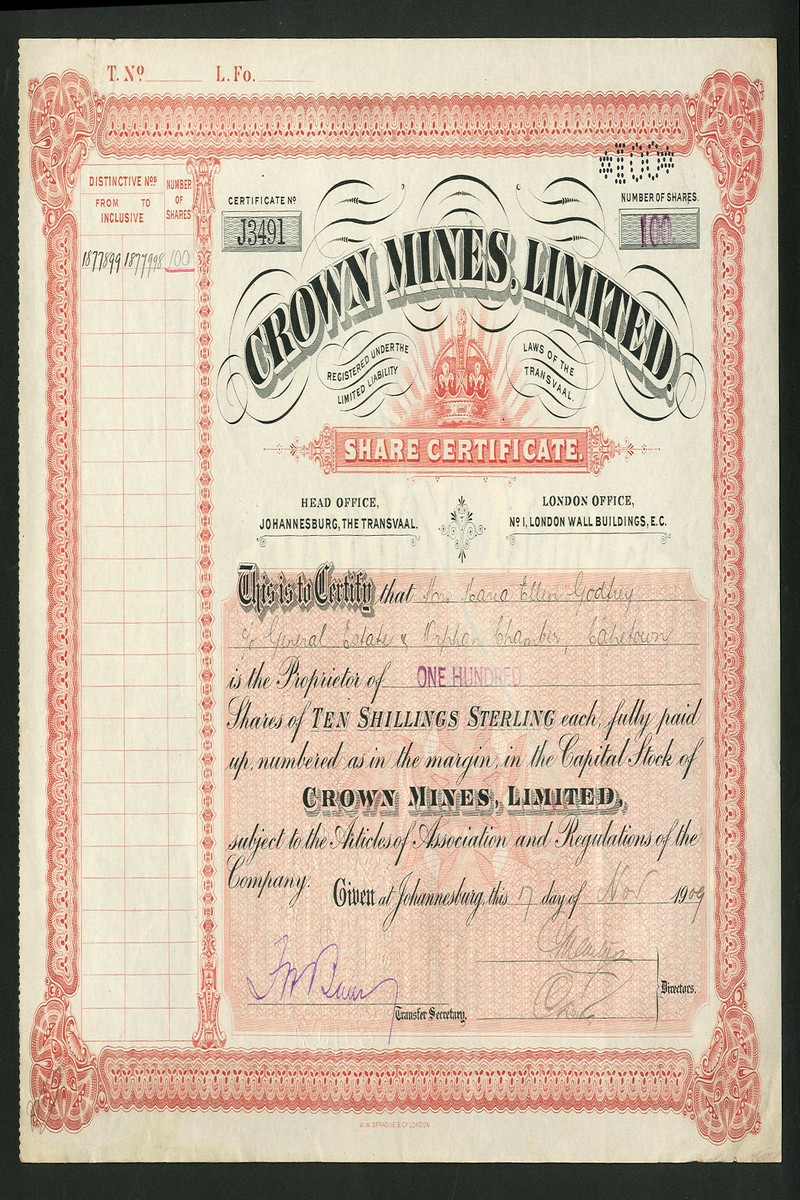 T. Nº L. Fo.
*100*
DISTINCTIVE Nºs
FROM TO
INCLUSIVE
NUMBER
OF
SHARES
1877899 1877998 100
CERTIFICATE Nº
J3491
NUMBER OF SHARES.
100.
CROWN MINES, LIMITED.
REGISTERED UNDER THE
LIMITED LIABILITY
LAWS OF THE
TRANSVAAL.
SHARE CERTIFICATE.
HEAD OFFICE,
JOHANNESBURG, THE TRANSVAAL.
LONDON OFFICE,
Nº 1, LONDON WALL BUILDINGS, E.C.
This is to Certify that Maria Ellen Godfrey
c/o General Estate & Orphan Chamber, Capetown
is the Proprietor of ONE HUNDRED
Shares of TEN SHILLINGS STERLING each, fully paid
up, numbered as in the margin, in the Capital Stock of
CROWN MINES, LIMITED,
subject to the Articles of Association and Regulations of the
Company.
Given at Johannesburg, this 17 day of Nov 1909
Directors.
Transfer Secretary.
W. W. SPRAGUE & Cº LONDON